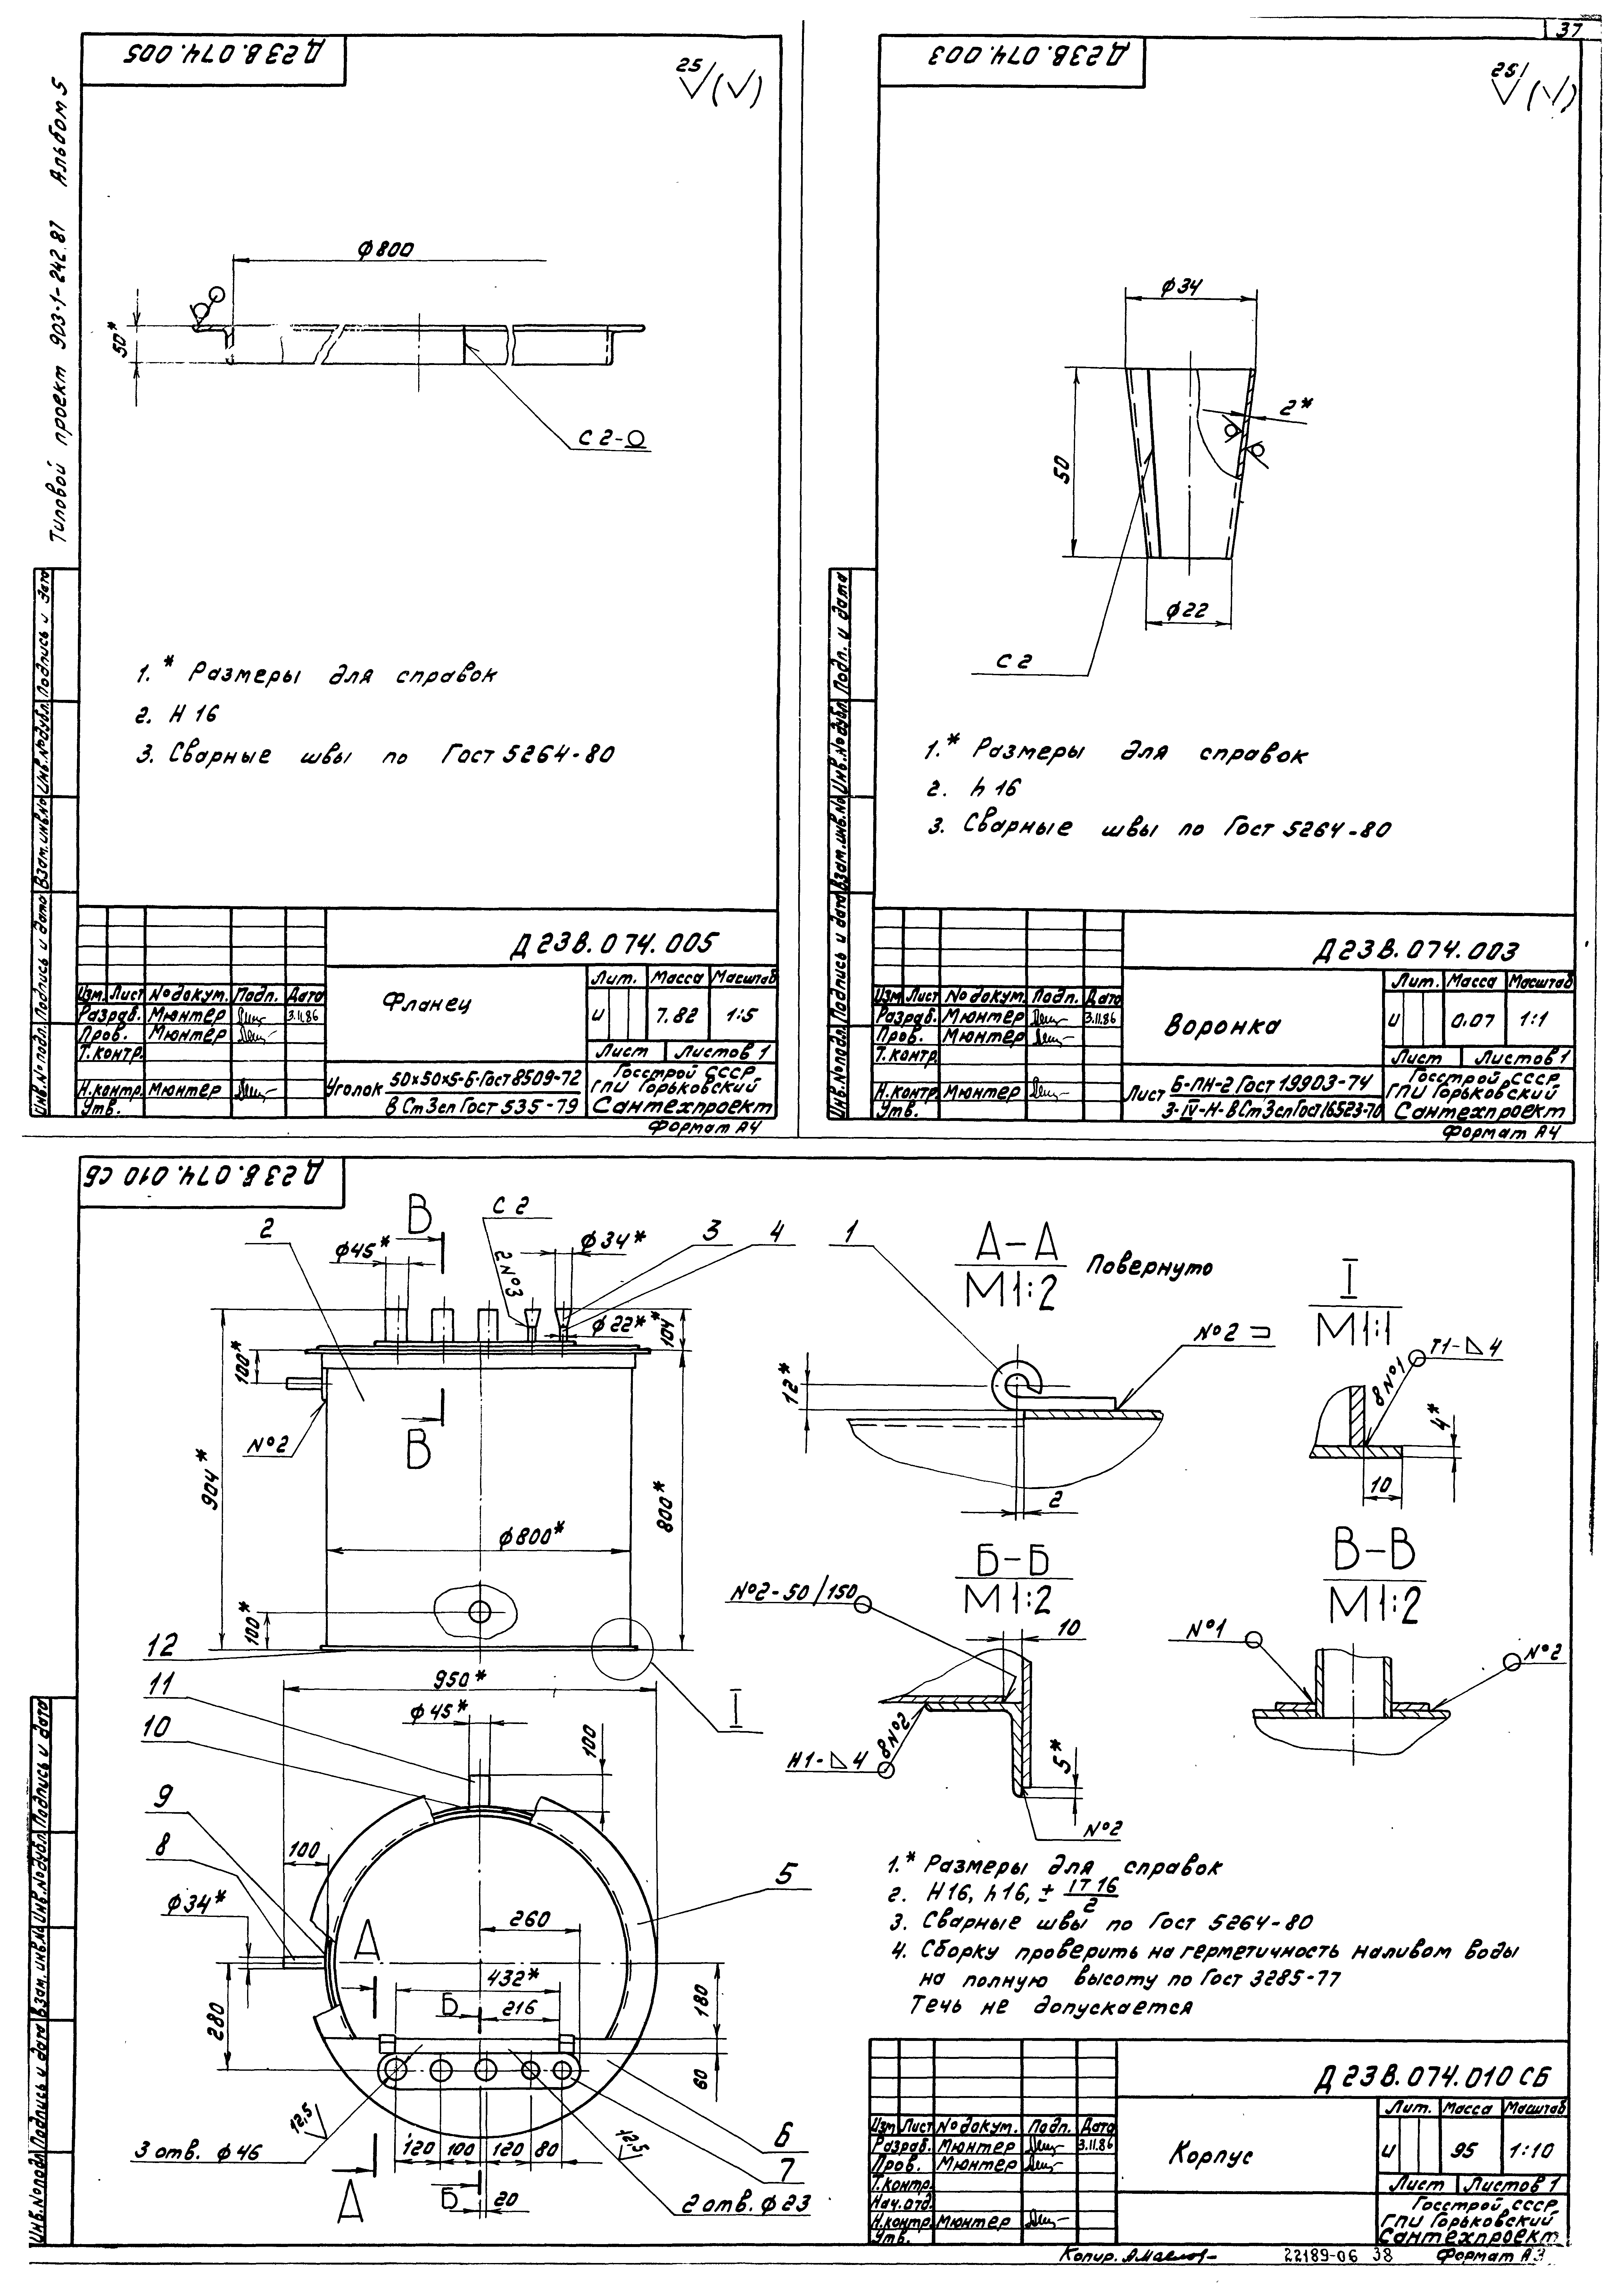 37
Типовой проект 903-1-242.87 Альбом 5
Д 23 В. 074. 005
25 (√)
Ф800
50*
С 2-
1.* Размеры для справок
2. Н 16
3. Сварные швы по Гост 5264-80
Инв.№подл. Подпись и дата Взам.инв.№ Инв.№дубл. Подпись и дата
Д 23 В. 074. 005
Фланец
Лит. Масса Масштаб
и 7.82 1:5
Лист Листов 1
Изм. Лист №докум. Подп. Дата
Разраб. Мюнтер 3.11.86
Пров. Мюнтер
Т.контр.
Н.контр. Мюнтер
Утв.
Уголок 50х50х5-Б-Гост 8509-72
В Ст 3сп Гост 535-79
Госстрой СССР
ГПИ Горьковский
Сантехпроект
Формат А4
Д 23В. 074. 003
25 (√)
Ф34
50
2*
Ф22
С 2
1.* Размеры для справок
2. h 16
3. Сварные швы по Гост 5264-80
Инв.№подл. Подпись и дата Взам.инв.№ Инв.№дубл. Подп. и дата
Д 23 В. 074. 003
Воронка
Лит. Масса Масштаб
и 0.07 1:1
Лист Листов 1
Изм. Лист №докум. Подп. Дата
Разраб. Мюнтер 3.11.86
Пров. Мюнтер
Т.контр.
Н.контр. Мюнтер
Утв.
Лист Б-ПН-2 Гост 19903-74
3-IV-Н-В Ст 3сп Гост 16523-70
Госстрой СССР
ГПИ Горьковский
Сантехпроект
Формат А4
Д 23 В. 074. 010 СБ
2
В
С 2
2 №3
Ф45*
Ф34*
3
4
1
Ф22*
104
100*
№2
904*
В
800*
Ф800*
100*
12
I
11
950*
Ф45*
10
100
9
8
100
Ф34*
5
260
А
432*
Б
216
280
180
60
12,5
3 отв. Ф46
120 100 120 80
А
Б
20
12,5
2 отв. Ф23
6
7
А-А
М1:2
Повернуто
12*
№2
2
I
М1:1
Т1- 4
8 №1
4*
10
Б-Б
М1:2
№2-50/150
10
Н1- 4
8 №2
5*
№2
В-В
М1:2
№1
№2
1.* Размеры для справок
2. Н16, h16, ± IT 16/2
3. Сварные швы по Гост 5264-80
4. Сборку проверить на герметичность наливом воды
на полную высоту по Гост 3285-77
Течь не допускается
Инв.№подл. Подпись и дата Взам.инв.№ Инв.№дубл. Подпись и дата
Д 23В.074.010 СБ
Корпус
Лит. Масса Масштаб
и 95 1:10
Лист Листов 1
Изм. Лист №докум. Подп. Дата
Разраб. Мюнтер 3.11.86
Пров. Мюнтер
Т.контр.
Нач.отд.
Н.контр. Мюнтер
Утв.
Госстрой СССР
ГПИ Горьковский
Сантехпроект
Копир. 22189-06 38 Формат А3